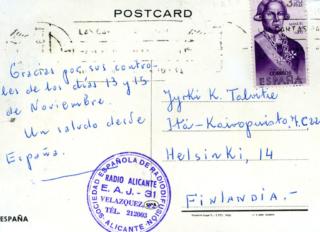 POSTCARD
3 Pts
CORREOS
ESPAÑA
Gracias por sus contro-
les de los días 13 y 15
de Noviembre.
Un saludo desde
España.
Jyrki K. Talvitie
Itä-Kaivopuisto
Helsinki, 14
FINLANDIA.-
SOCIEDAD ESPAÑOLA DE RADIODIFUSIÓN
RADIO ALICANTE
E. A. J. - 31
VELAZQUEZ,
TÉL. 212003
ALICANTE
ESPAÑA